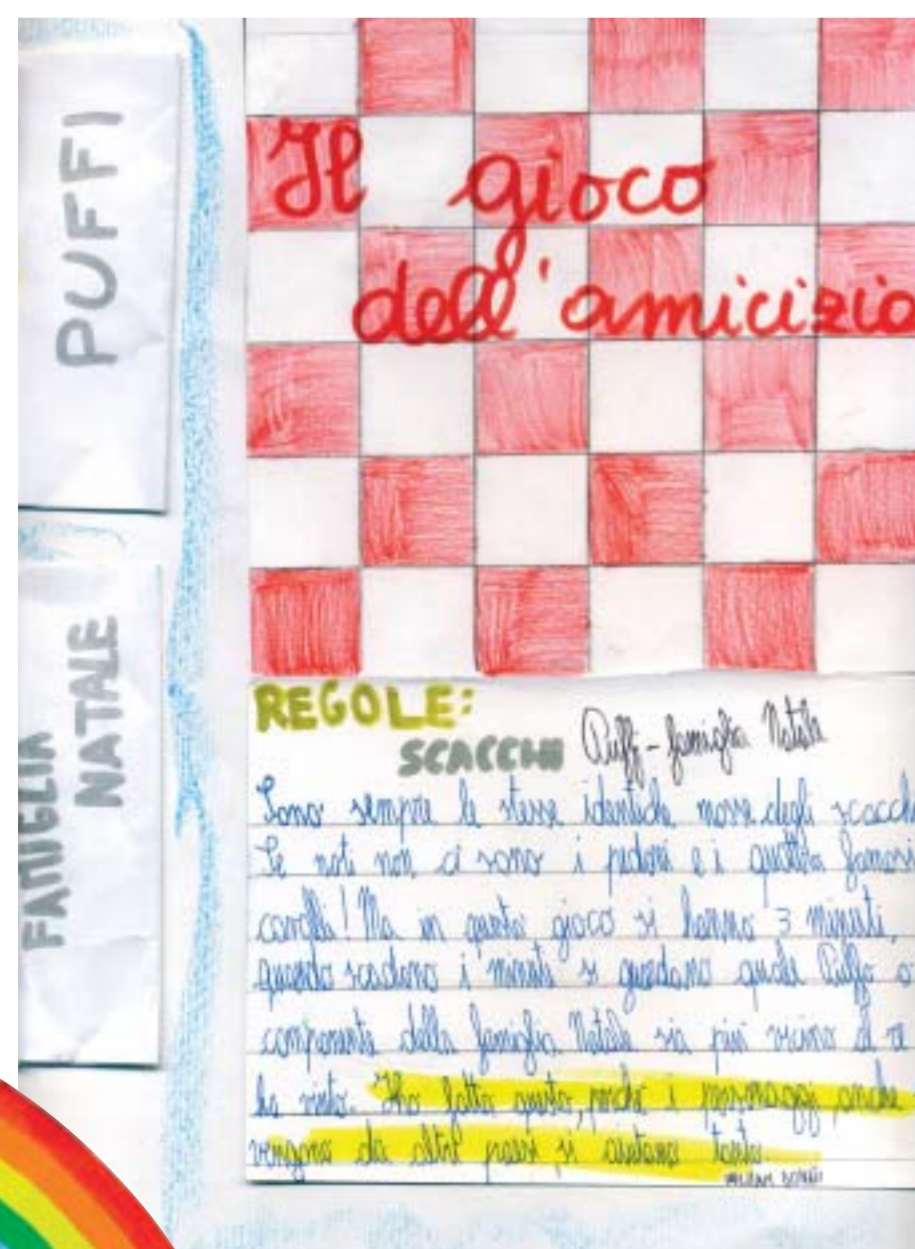 PUFFI
FAMIGLIA
NATALE
Il gioco
dell'amicizia
REGOLE:
SCACCHI Puffi - famiglia Natale
Sono sempre le stesse identiche mosse degli scacchi
Se noti non ci sono i pedoni e i quattro famosi
cavalli! Ma in questo gioco si hanno 3 minuti,
quando scadono i minuti si guardano quale Puffo o
componente della famiglia Natale sia più vicino al re
ha vinto. Ho fatto questo, perché i personaggi anche
vengono da altri paesi si aiutano tanto